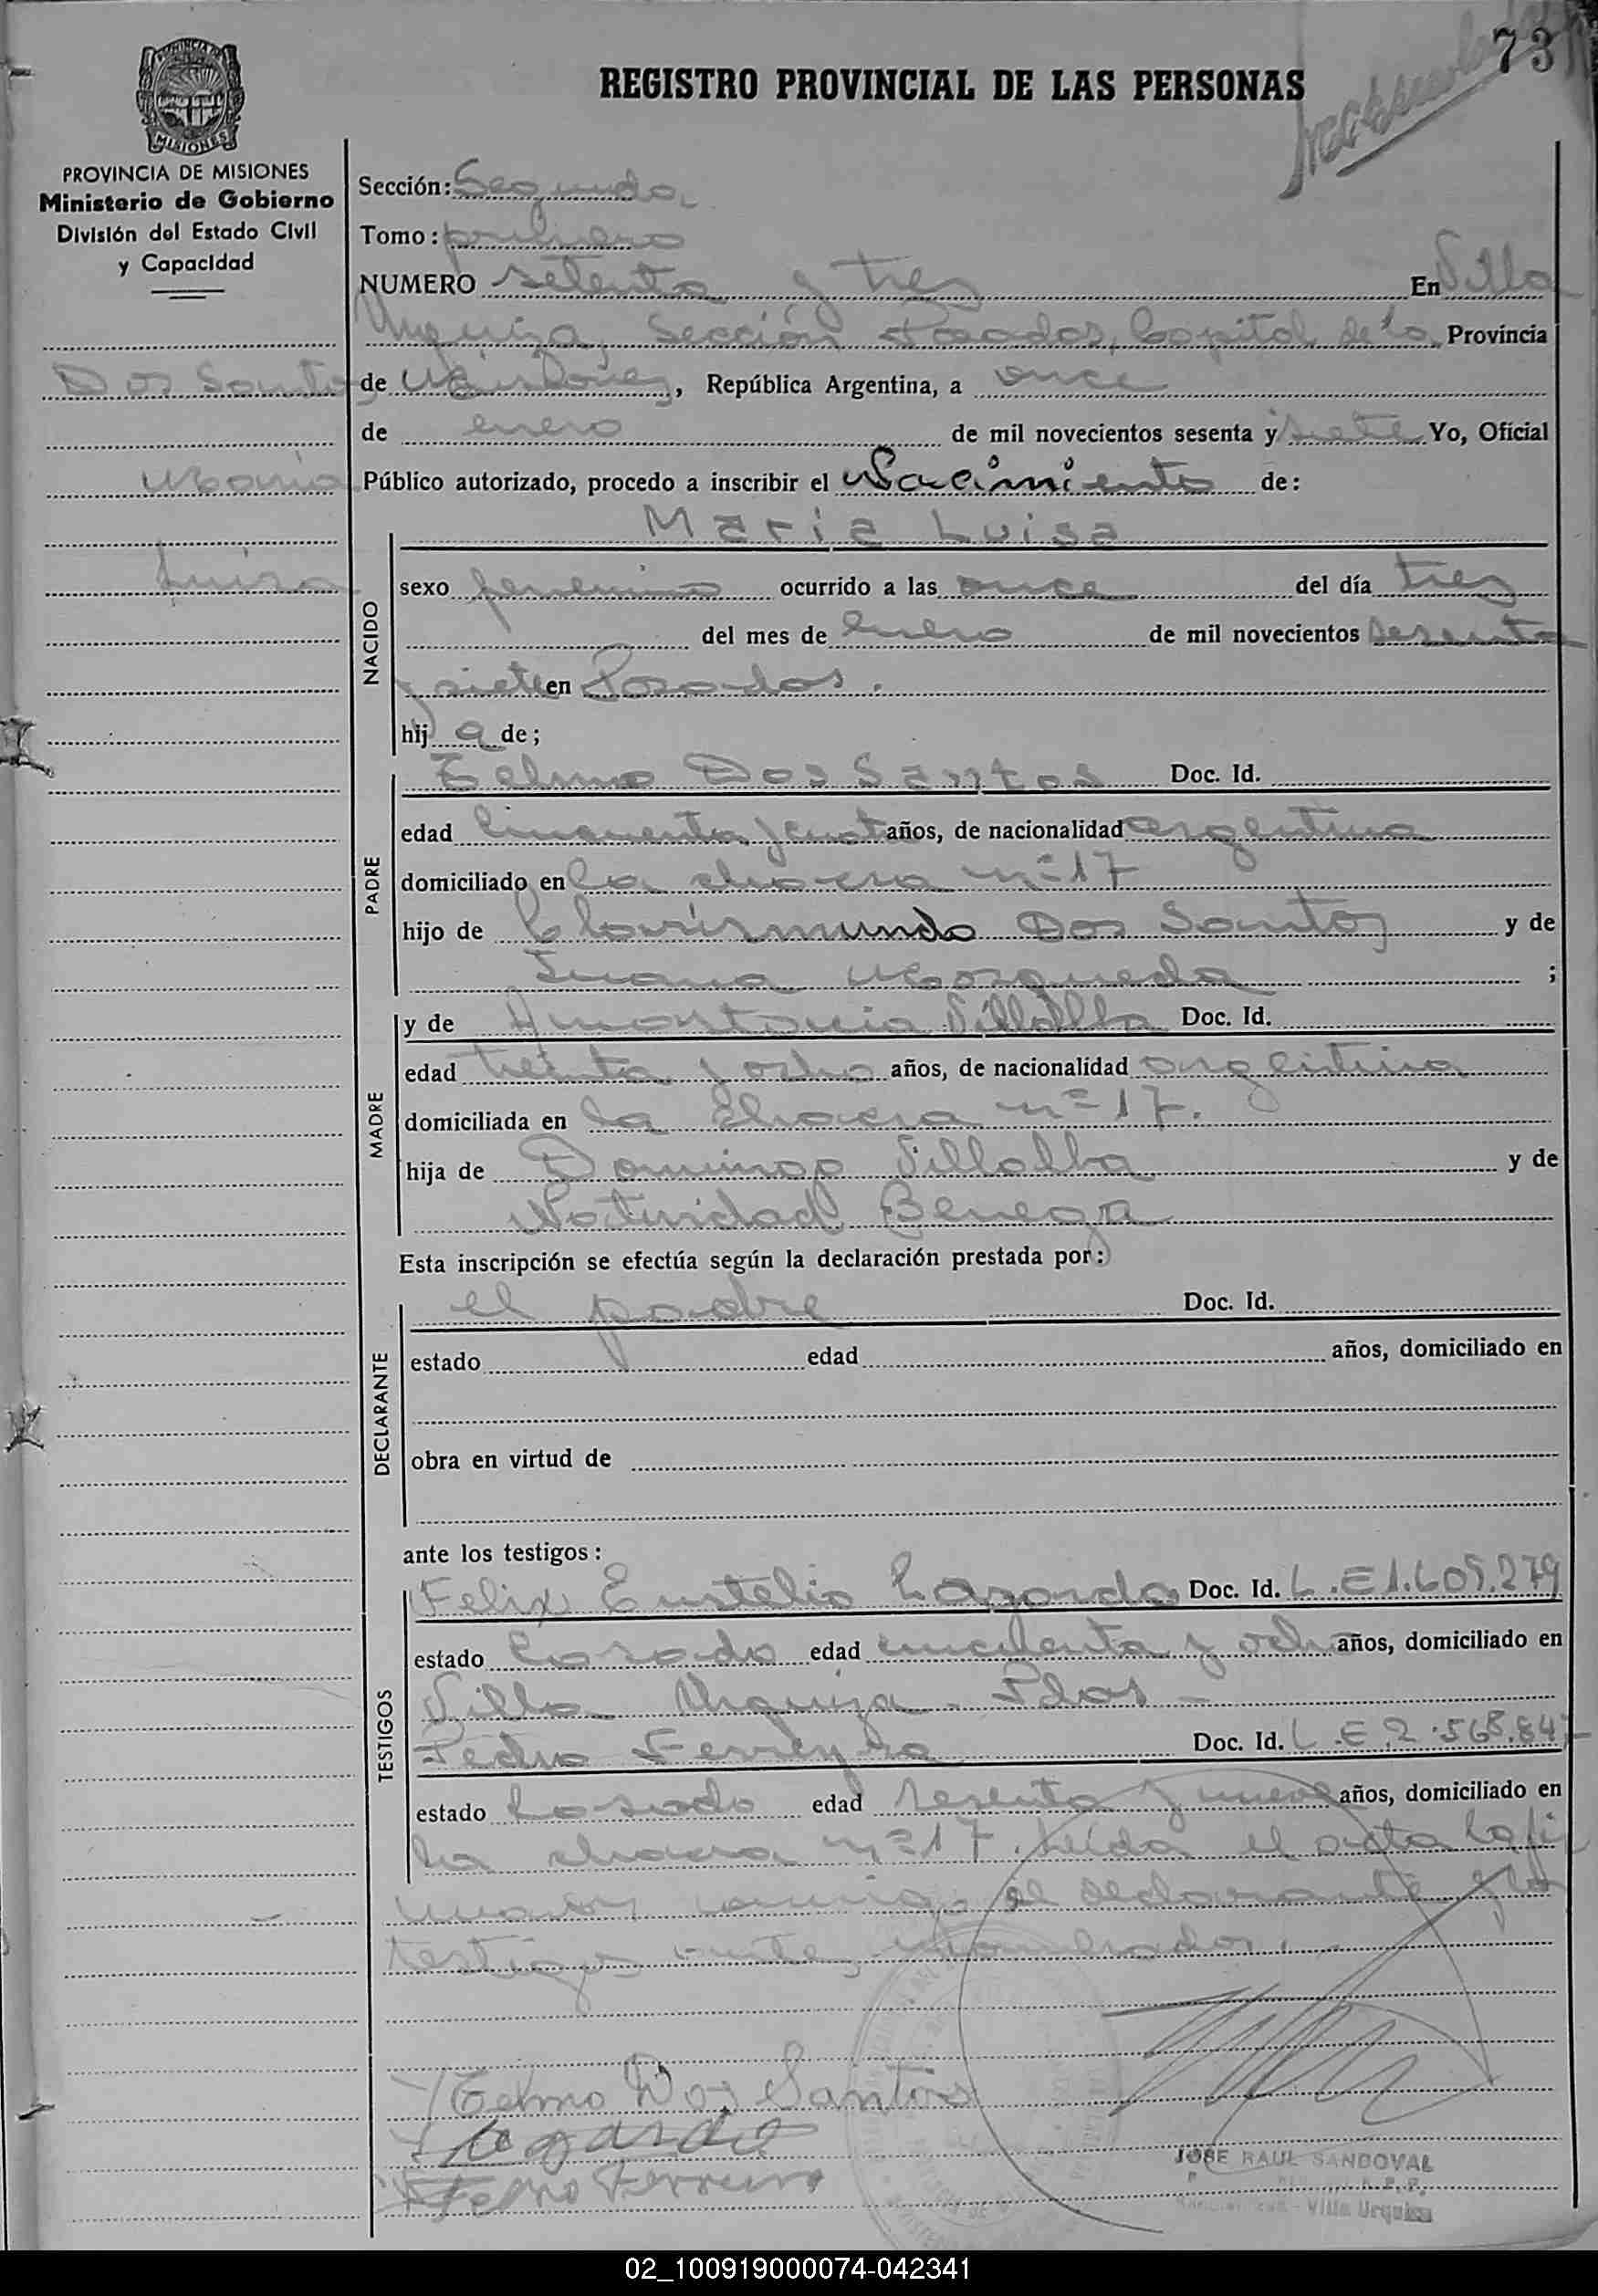 73
REGISTRO PROVINCIAL DE LAS PERSONAS
PROVINCIA DE MISIONES
Ministerio de Gobierno
División del Estado Civil
y Capacidad
Dos Santos
María
Luisa
Sección: Segunda
Tomo: primero
NUMERO setenta y tres En Villa
Urquiza, Sección Posadas, Capital de la Provincia
de Misiones, República Argentina, a once
de enero de mil novecientos sesenta y siete Yo, Oficial
Público autorizado, procedo a inscribir el Nacimiento de:
NACIDO
María Luisa
sexo femenino ocurrido a las once del día tres
del mes de Enero de mil novecientos sesenta
y siete en Posadas.
hij a de;
PADRE
Telmo Dos Santos Doc. Id.
edad Cincuenta y cuat años, de nacionalidad argentina
domiciliado en la chacra n° 17
hijo de Clarismundo Dos Santos y de
Juana Mosqueda ;
MADRE
y de Villalba Doc. Id.
edad treinta y ocho años, de nacionalidad argentina
domiciliada en la Chacra n° 17.
hija de Domingo Villalba y de
Natividad Benega
Esta inscripción se efectúa según la declaración prestada por:
DECLARANTE
el padre Doc. Id.
estado edad años, domiciliado en
obra en virtud de
ante los testigos:
TESTIGOS
Felix Eustelio Doc. Id. L.E 1.609.279
estado Casado edad cincuenta y ocho años, domiciliado en
Villa Urquiza - Pdas -
Pedro Ferreyra Doc. Id. L.E.2.568.847
estado Casado edad sesenta y nueve años, domiciliado en
la chacra n° 17. Leída el acta la fir
maron conmigo el declarante y los
testigos antes nombrados.
Telmo Dos Santos
Pedro Ferreira
JOSE RAUL SANDOVAL
Villa Urquiza
02_100919000074-042341